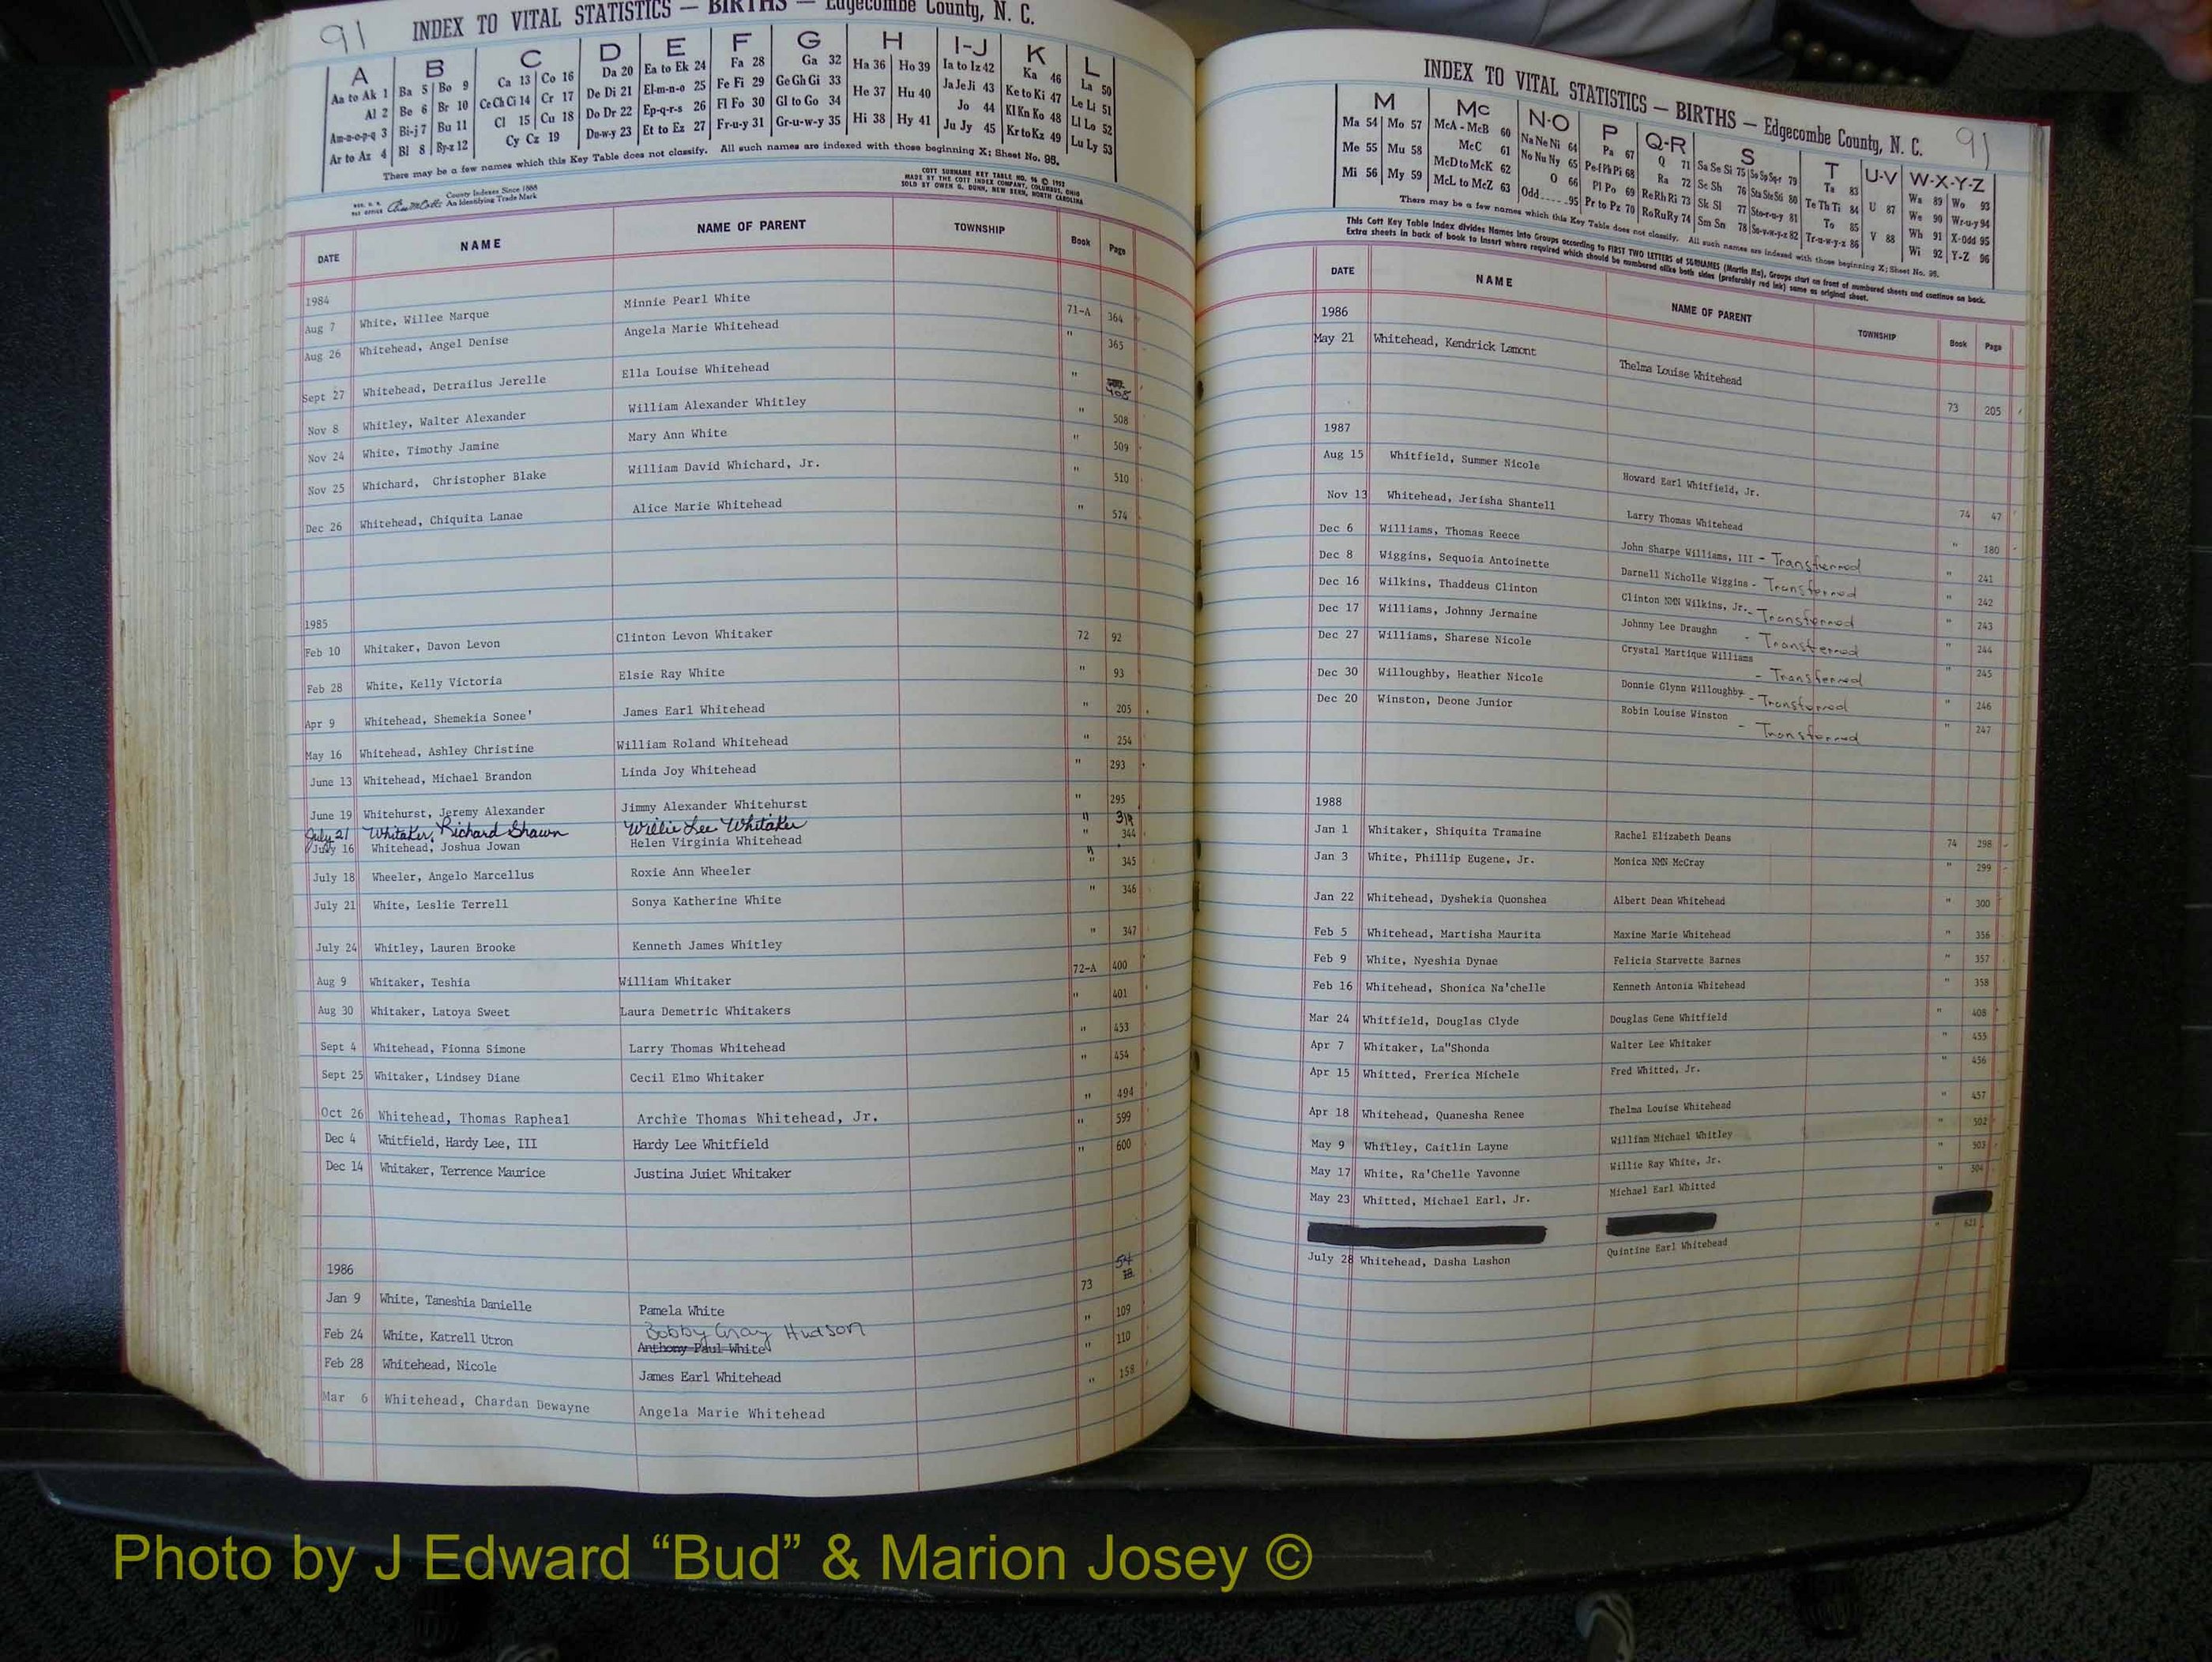 91
INDEX TO VITAL STATISTICS — BIRTHS — Edgecombe County, N. C.
A B C D E F G H I-J K L
Aa to Ak 1 Ba 5 Bo 9 Ca 13 Co 16 Da 20 Ea to Ek 24 Fa 28 Ga 32 Ha 36 Ho 39 Ia to Iz 42 Ka 46 La 50
Al 2 Be 6 Br 10 Ce Ch Ci 14 Cr 17 De Di 21 El-m-n-o 25 Fe Fi 29 Ge Gh Gi 33 He 37 Hu 40 Ja Je Ji 43 Ke to Ki 47 Le Li 51
Am-n-o-p-q 3 Bi-j 7 Bu 11 Cl 15 Cu 18 Do Dr 22 Ep-q-r-s 26 Fl Fo 30 Gl to Go 34 Hi 38 Hy 41 Jo 44 Kl Kn Ko 48 Ll Lo 52
Ar to Az 4 Bl 8 By-z 12 Cy Cz 19 Du-w-y 23 Et to Ez 27 Fr-u-y 31 Gr-u-w-y 35 Ju Jy 45 Kr to Kz 49 Lu Ly 53
There may be a few names which this Key Table does not classify. All such names are indexed with those beginning X; Sheet No. 95.
County Indexes Since 1888
An Identifying Trade Mark
COTT SURNAME KEY TABLE NO. 96 © 1953
MADE BY THE COTT INDEX COMPANY, COLUMBUS, OHIO
SOLD BY OWEN G. DUNN, NEW BERN, NORTH CAROLINA
DATE NAME NAME OF PARENT TOWNSHIP Book Page
1984
Aug 7 White, Willee Marque Minnie Pearl White 71-A 364
Aug 26 Whitehead, Angel Denise Angela Marie Whitehead " 365
Sept 27 Whitehead, Detrailus Jerelle Ella Louise Whitehead " 405
Nov 8 Whitley, Walter Alexander William Alexander Whitley " 508
Nov 24 White, Timothy Jamine Mary Ann White " 509
Nov 25 Whichard, Christopher Blake William David Whichard, Jr. " 510
Dec 26 Whitehead, Chiquita Lanae Alice Marie Whitehead " 574
1985
Feb 10 Whitaker, Davon Levon Clinton Levon Whitaker 72 92
Feb 28 White, Kelly Victoria Elsie Ray White " 93
Apr 9 Whitehead, Shemekia Sonee' James Earl Whitehead " 205
May 16 Whitehead, Ashley Christine William Roland Whitehead " 254
June 13 Whitehead, Michael Brandon Linda Joy Whitehead " 293
June 19 Whitehurst, Jeremy Alexander Jimmy Alexander Whitehurst " 295
July 21 Whitaker, Richard Shawn Willie Lee Whitaker " 319
July 16 Whitehead, Joshua Jowan Helen Virginia Whitehead " 344
July 18 Wheeler, Angelo Marcellus Roxie Ann Wheeler " 345
July 21 White, Leslie Terrell Sonya Katherine White " 346
July 24 Whitley, Lauren Brooke Kenneth James Whitley " 347
Aug 9 Whitaker, Teshia William Whitaker 72-A 400
Aug 30 Whitaker, Latoya Sweet Laura Demetric Whitakers " 401
Sept 4 Whitehead, Fionna Simone Larry Thomas Whitehead " 453
Sept 25 Whitaker, Lindsey Diane Cecil Elmo Whitaker " 454
Oct 26 Whitehead, Thomas Rapheal Archie Thomas Whitehead, Jr. " 494
Dec 4 Whitfield, Hardy Lee, III Hardy Lee Whitfield " 599
Dec 14 Whitaker, Terrence Maurice Justina Juiet Whitaker " 600
1986
Jan 9 White, Taneshia Danielle Pamela White 73 54
Feb 24 White, Katrell Utron Bobby Gray Hudson " 109
Anthony Paul White
Feb 28 Whitehead, Nicole James Earl Whitehead " 110
Mar 6 Whitehead, Chardan Dewayne Angela Marie Whitehead " 158
INDEX TO VITAL STATISTICS — BIRTHS — Edgecombe County, N. C.
91
M Mc N-O P Q-R S T U-V W-X-Y-Z
Ma 54 Mo 57 McA - McB 60 Na Ne Ni 64 Pa 67 Q 71 Sa Se Si 75 So Sp Sq-r 79 Ta 83 U 87 Wa 89 Wo 93
Me 55 Mu 58 McC 61 No Nu Ny 65 Pe-f Ph Pi 68 Ra 72 Sc Sh 76 Sta Ste Sti 80 Te Th Ti 84 V 88 We 90 Wr-u-y 94
Mi 56 My 59 McD to McK 62 O 66 Pl Po 69 Re Rh Ri 73 Sk Sl 77 Sto-r-u-y 81 To 85 Wh 91 X-Odd 95
McL to McZ 63 Odd 95 Pr to Pz 70 Ro Ru Ry 74 Sm Sn 78 Su-v-w-y-z 82 Tr-u-w-y-z 86 Wi 92 Y-Z 96
There may be a few names which this Key Table does not classify. All such names are indexed with those beginning X; Sheet No. 95.
This Cott Key Table Index divides Names into Groups according to FIRST TWO LETTERS of SURNAMES (Martin Ma), Groups start on front of numbered sheets and continue on back.
Extra sheets in back of book to insert where required which should be numbered alike both sides (preferably red ink) same as original sheet.
DATE NAME NAME OF PARENT TOWNSHIP Book Page
1986
May 21 Whitehead, Kendrick Lamont Thelma Louise Whitehead 73 205
1987
Aug 15 Whitfield, Summer Nicole Howard Earl Whitfield, Jr. 74 47
Nov 13 Whitehead, Jerisha Shantell Larry Thomas Whitehead " 180
Dec 6 Williams, Thomas Reece John Sharpe Williams, III - Transferred " 241
Dec 8 Wiggins, Sequoia Antoinette Darnell Nicholle Wiggins - Transferred " 242
Dec 16 Wilkins, Thaddeus Clinton Clinton NMN Wilkins, Jr. - Transferred " 243
Dec 17 Williams, Johnny Jermaine Johnny Lee Draughn - Transferred " 244
Dec 27 Williams, Sharese Nicole Crystal Martique Williams - Transferred " 245
Dec 30 Willoughby, Heather Nicole Donnie Glynn Willoughby - Transferred " 246
Dec 20 Winston, Deone Junior Robin Louise Winston - Transferred " 247
1988
Jan 1 Whitaker, Shiquita Tramaine Rachel Elizabeth Deans 74 298
Jan 3 White, Phillip Eugene, Jr. Monica NMN McCray " 299
Jan 22 Whitehead, Dyshekia Quonshea Albert Dean Whitehead " 300
Feb 5 Whitehead, Martisha Maurita Maxine Marie Whitehead " 356
Feb 9 White, Nyeshia Dynae Felicia Starvette Barnes " 357
Feb 16 Whitehead, Shonica Na'chelle Kenneth Antonia Whitehead " 358
Mar 24 Whitfield, Douglas Clyde Douglas Gene Whitfield " 408
Apr 7 Whitaker, La"Shonda Walter Lee Whitaker " 455
Apr 15 Whitted, Frerica Michele Fred Whitted, Jr. " 456
Apr 18 Whitehead, Quanesha Renee Thelma Louise Whitehead " 457
May 9 Whitley, Caitlin Layne William Michael Whitley " 502
May 17 White, Ra'Chelle Yavonne Willie Ray White, Jr. " 503
May 23 Whitted, Michael Earl, Jr. Michael Earl Whitted " 504
July 28 Whitehead, Dasha Lashon Quintine Earl Whitehead " 621
Photo by J Edward “Bud” & Marion Josey ©